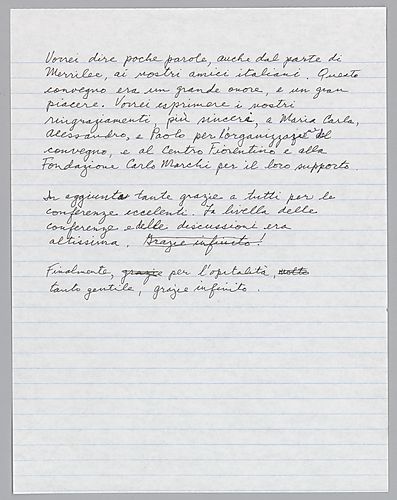 Vorrei dire poche parole, anche dal parte di
Merrilee, ai nostri amici italiani. Questo
convegno era un grande onore, e un gran
piacere. Vorrei esprimere i nostri
ringraziamenti, più sinceri, a Maria Carla,
Alessandro, e Paolo per l'organizzazione del
convegno, e al Centro Fiorentino e alla
Fondazione Carlo Marchi per il loro supporto.
In aggiunta tante grazie a tutti per le
conferenze eccelenti. La livella delle
conferenze e delle discussioni era
altissima. Grazie infinito!
Finalmente, grazie per l'opitalità, molto
tanto gentile, grazie infinito.